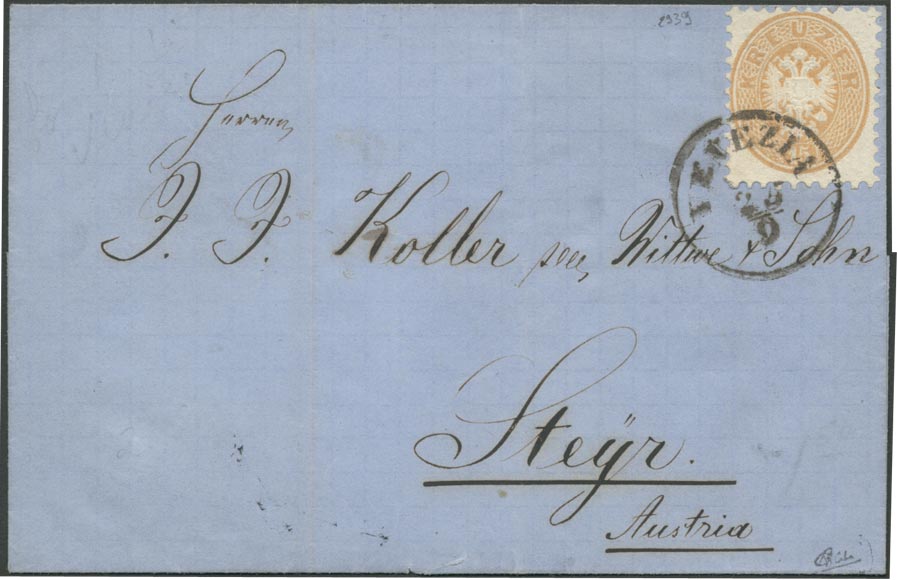 2939
KREUZER
VENEZIA
25/9
Herren
J. J. Koller sen. Wittwe & Sohn
Steÿr.
Austria